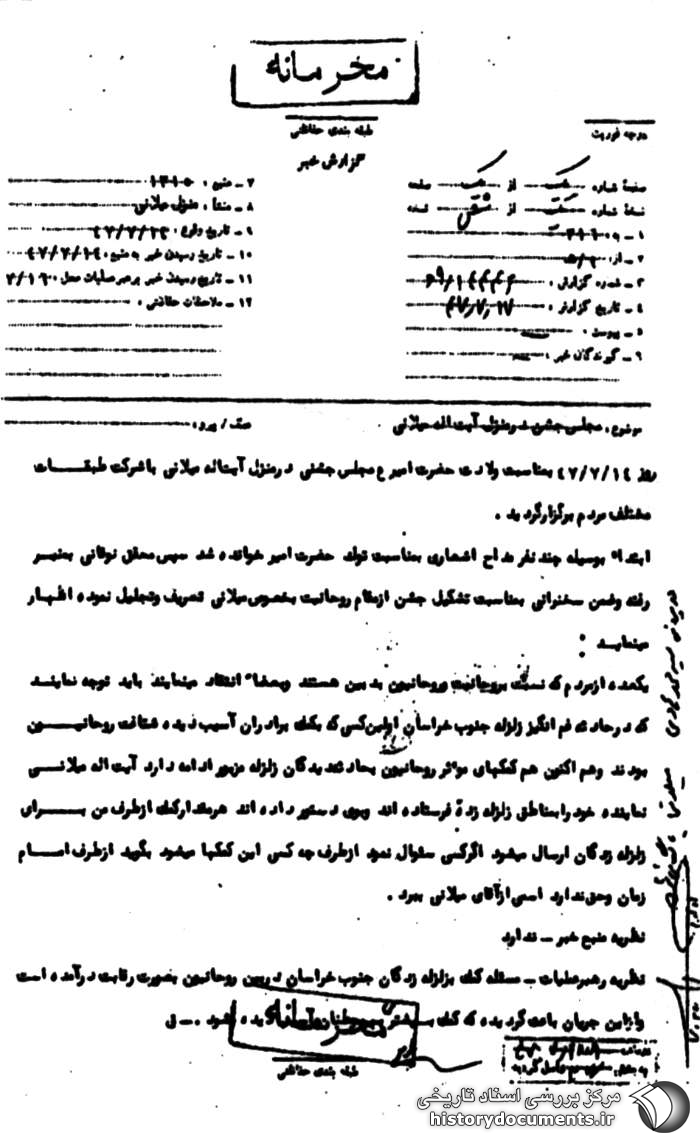 محرمانه
طبقه بندی حفاظتی
درجه فوریت
گزارش خبر
صفحهٔ شماره یک از یک صفحه
نسخهٔ شماره از شش نسخه
۱ - به :
۲ - از :
۳ - شماره گزارش :
۴ - تاریخ گزارش : ۴۷٫۷٫۱۷
۵ - پیوست :
۶ - گیرندگان خبر :
۷ - منبع :
۸ - منشأ : منزل میلانی
۹ - تاریخ وقوع : ۴۷/۷/۱۴
۱۰ - تاریخ رسیدن خبر به منبع : ۴۷/۷/۱۴
۱۱ - تاریخ رسیدن خبر برهبر عملیات محل :
۱۲ - ملاحظات حفاظتی :
موضوع : مجلس جشن در منزل آیت اله میلانی
عطف / پیرو :
روز ۴۷/۷/۱۴ بمناسبت ولادت حضرت امیر ع مجلس جشنی در منزل آیت اله میلانی باشرکت طبقات
مختلف مردم برگزار گردید .
ابتداء بوسیله چند نفر مداح اشعاری بمناسبت تولد حضرت امیر خوانده شد سپس محقق نوقانی بمنبر
رفته وضمن سخنرانی بمناسبت تشکیل جشن از مقام روحانیت بخصوص میلانی تعریف وتجلیل نموده اظهار
مینماید :
یکعده از مردم که نسبت بروحانیت وروحانیون بدبین هستند وبعضاً انتقاد مینمایند باید توجه نمایند
که در حادثه غم انگیز زلزله جنوب خراسان اولین کسی که بکمک برادران آسیب دیده شتافت روحانیون
بودند وهم اکنون هم کمکهای موثر روحانیون بحادثه دیدگان زلزله مزبور ادامه دارد آیت اله میلانی
نماینده خود را بمناطق زلزله زده فرستاده اند وبوی دستور داده اند هرمقدار کمک از طرف من برای
زلزله زدگان ارسال میشود اگر کسی سئوال نمود از طرف چه کسی این کمکها میشود بگوید از طرف امام
زمان وحق ندارد اسمی از آقای میلانی ببرد .
نظریه منبع خبر - ندارد
نظریه رهبر عملیات - مسئله کمک بزلزله زدگان جنوب خراسان در بین روحانیون بصورت رقابت در آمده است
واز این جریان باعث گردیده که کمک بیشتر شود . - ل
محرمانه
طبقه بندی حفاظتی
مرکز بررسی اسناد تاریخی
historydocuments.ir